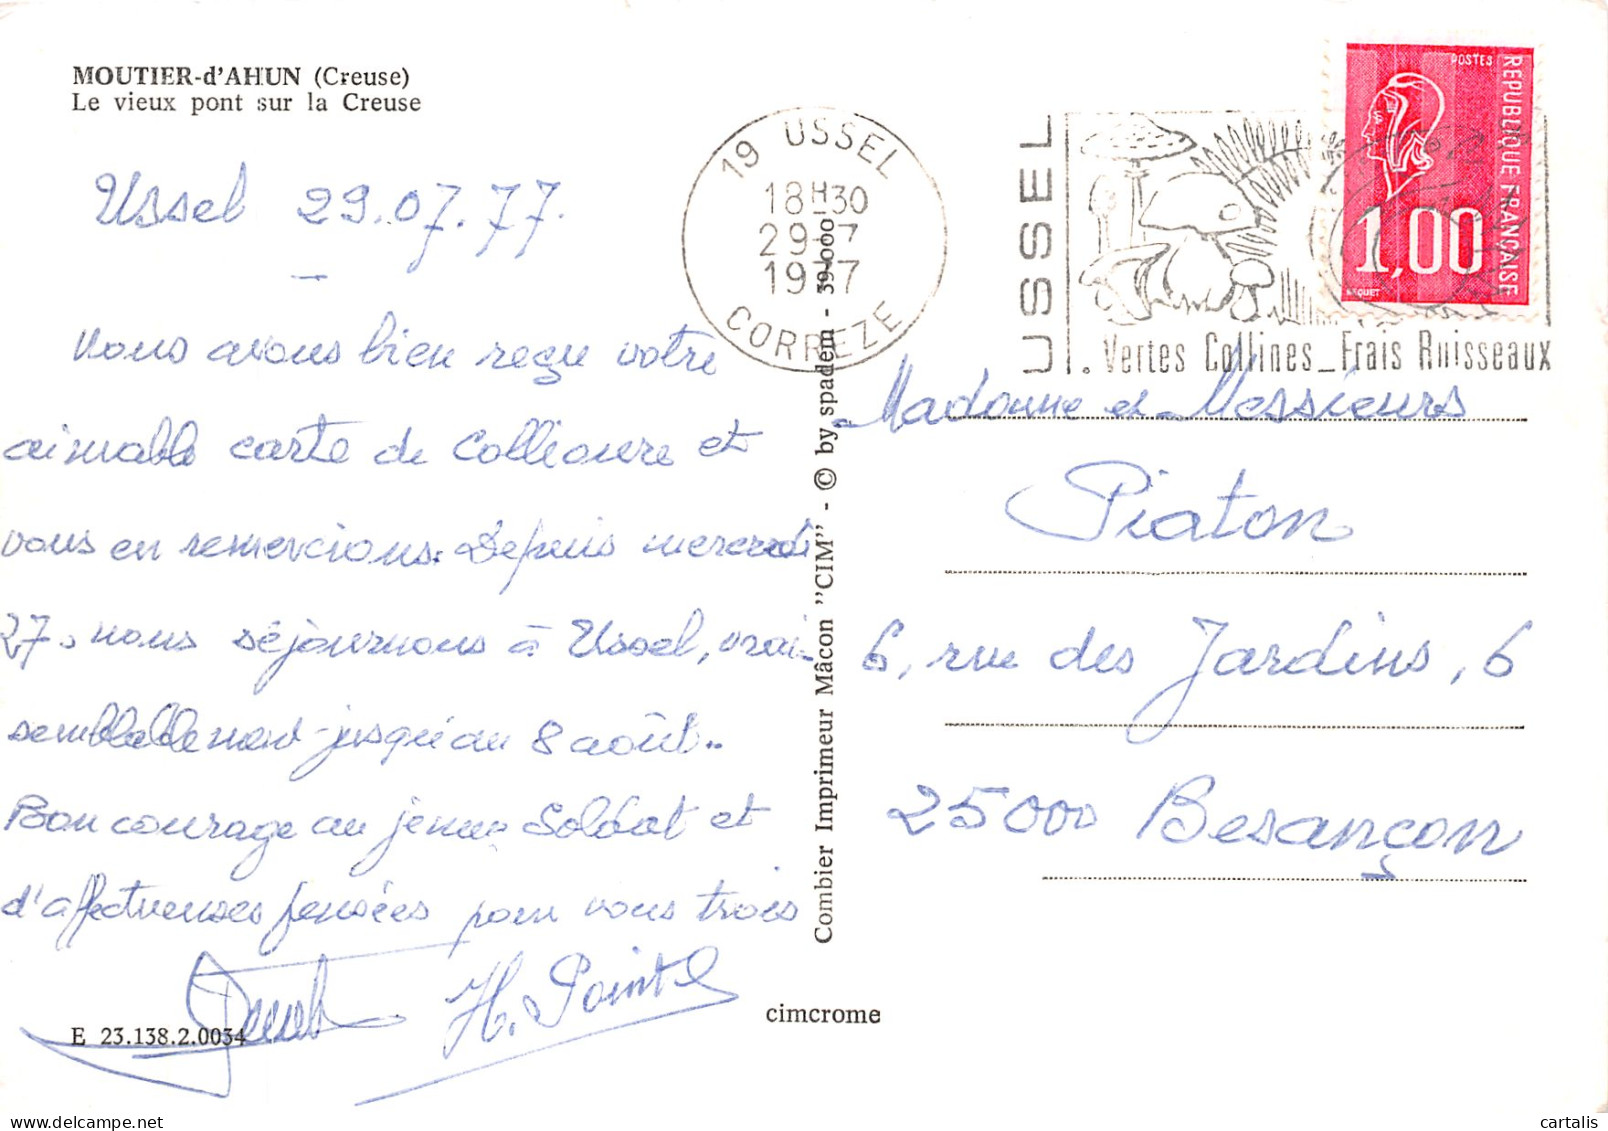 MOUTIER-d'AHUN (Creuse)
Le vieux pont sur la Creuse
Ussel 29.07.77.
Nous avons bien reçu votre
aimable carte de Collioure et
vous en remercions. Depuis mercredi
27, nous séjournons à Ussel, vrai-
semblablement jusqu'au 8 août..
Bon courage au jeune Soldat et
d'affectueuses pensées pour vous trois
H.
E 23.138.2.0034
cimcrome
Combier Imprimeur Mâcon "CIM" - © by spadem - 39.000
19 USSEL
18H30
29-7
1977
CORREZE
USSEL
. Vertes Collines _ Frais Ruisseaux
POSTES
REPUBLIQUE FRANÇAISE
1,00
Madame et Messieurs
Piaton
6, rue des Jardins, 6
25000 Besançon
cartalis
delcampe.net